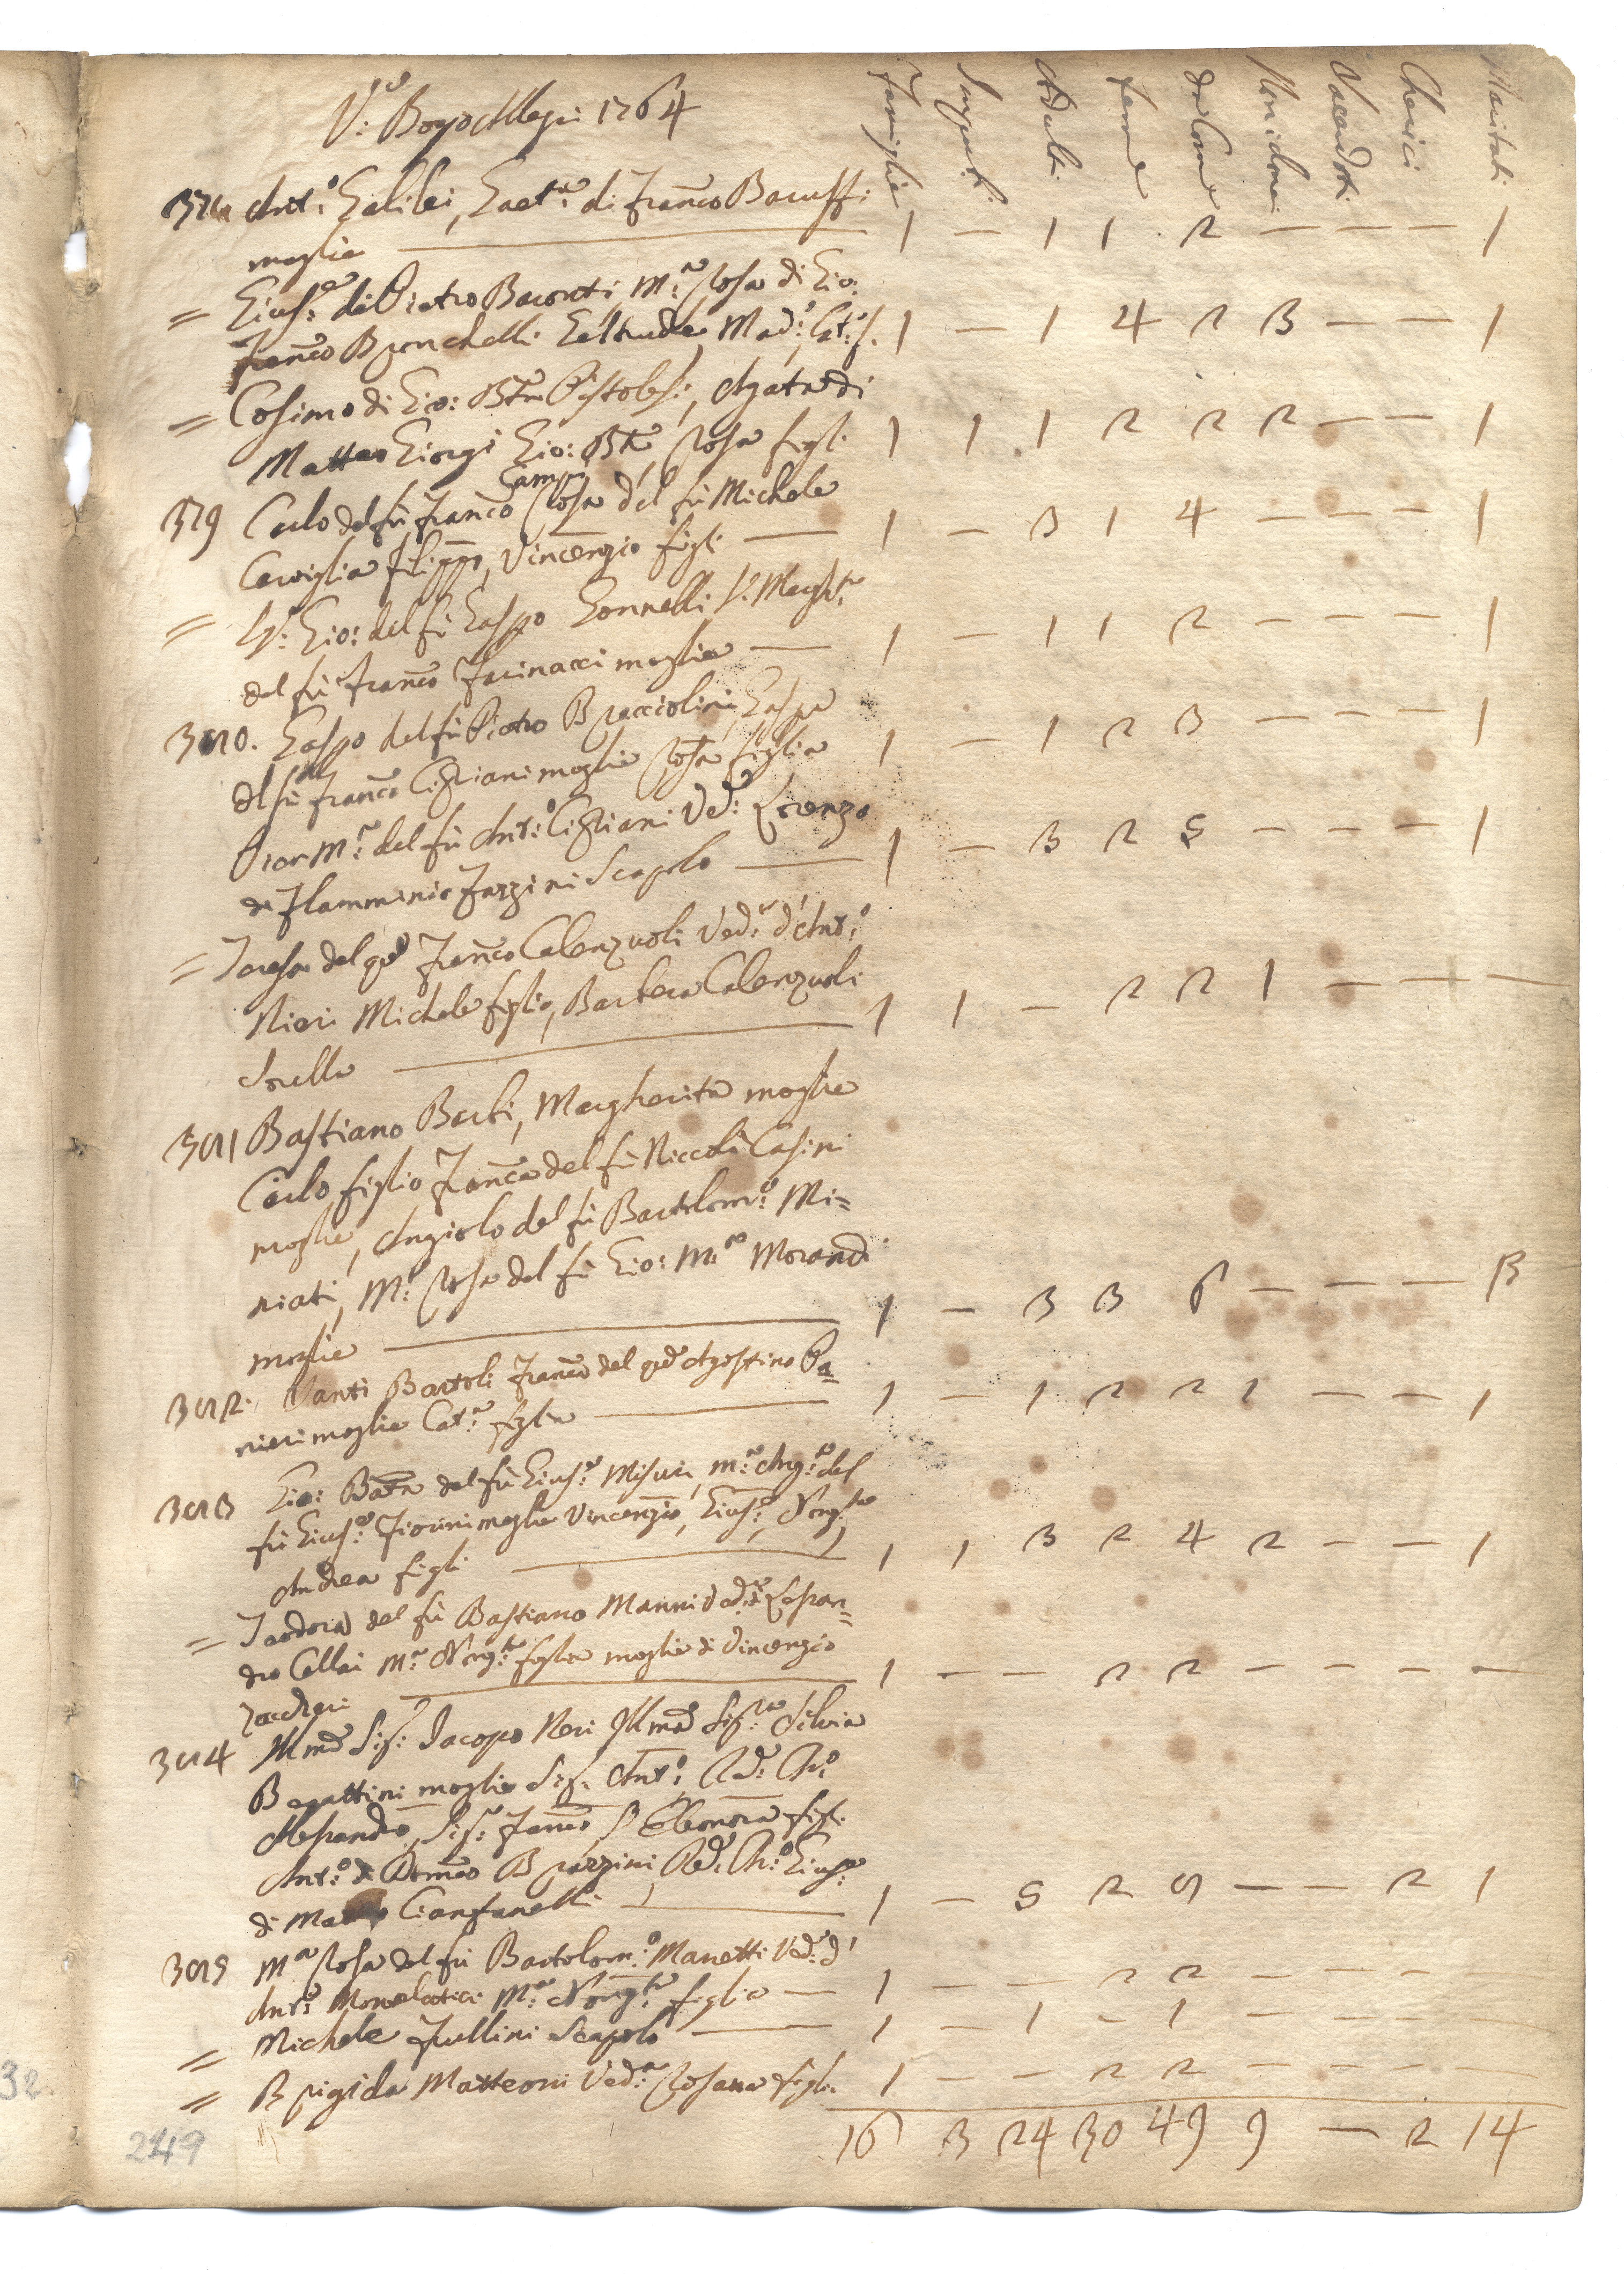 V:a Borgo Allegri 1764
Famiglie Impub: Adulti Femine da Com: Non idonei Sacerdoti Cherici Maritati
Ant:o Galilei, Gaet:a di Franco Baruffi
moglie 1 — 1 1 2 — — — 1
= Gius:e di Pietro Baronti M:a Rosa di Gio:
Franco Bronchelli Geltrude, Mad:a, Cat:a f. 1 — 1 4 2 3 — — 1
= Cosimo di Gio: Bta Pistolesi, Agata di
Matteo Giorgi Gio: Bta, Rosa figli 1 1 1 2 2 2 — — 1
379 Carlo del fù Franco Campi Rosa del fù Michele
Cerviglia Filippo, Vincenzio figli 1 — 3 1 4 — — — 1
= S:r Gio: del fù Gaspo Gonnelli S:a Margh:ta
del fù Franco Farinacci moglie 1 — 1 1 2 — — — 1
380. Gaspo del fù Pietro Bracciolini, Gaspa
del fù Franco Cipriani moglie Rosa figlia 1 — 1 2 3 — — — 1
M:a del fù Ant:o Cipriani Ved:a Lorenzo
di Flamminio Fazzini Scapolo 1 — 3 2 5 — — — 1
= Teresa del qd Franco Calenzuoli Ved:a d'Ant:o
Nieri Michele figlio, Barbera Calenzuoli
Sorella 1 1 — 2 2 1 — — —
381 Bastiano Barbi, Margherita moglie
Carlo figlio Franca del fù Niccolò Casini
moglie, Angiolo del fù Bartolom:o Mi=
niati, M:a Rosa del fù Gio: M:a Morandi
moglie 1 — 3 3 6 — — — 3
382. Santi Bartoli Franca del qd Agostino Pa=
nieri moglie Cat:a figlia 1 — 1 2 2 1 — — 1
383 Gio: Batta del fù Gius:e Misuri, M:a Ang:a del
fù Gius:e Fiorini moglie Vincenzio, Gius:e,
Andrea figli 1 1 3 2 4 2 — — 1
= Teodora del fù Bastiano Manni Ved:a d'Lessan=
dro Cellai M:a figlia moglie di Vincenzio
Zaccheri 1 — — 2 2 — — — —
384 Illmo Sig: Jacopo Neri Illma Sig:ra Silvia
Begattini moglie Sig: Ant:o, Rd: Ch:o
Alessandro, Sig:r Franco, S Eleonora figli
Ant:o di Domco Brazzini, Rd: Ch:o Gius:e
di Cianfanelli 1 — 5 2 9 — — 2 1
385 M:a Rosa del fù Bartolom:o Manetti Ved:a d'
Ant:o Monelatici M:a figlia 1 — — 2 2 — — —
= Michele Fullini Scapolo 1 — 1 — 1 — — — —
= Brigida Matteoni Ved:a Rosana figlia 1 — — 2 2 — — — —
16 3 24 30 49 9 — 2 14
249
32